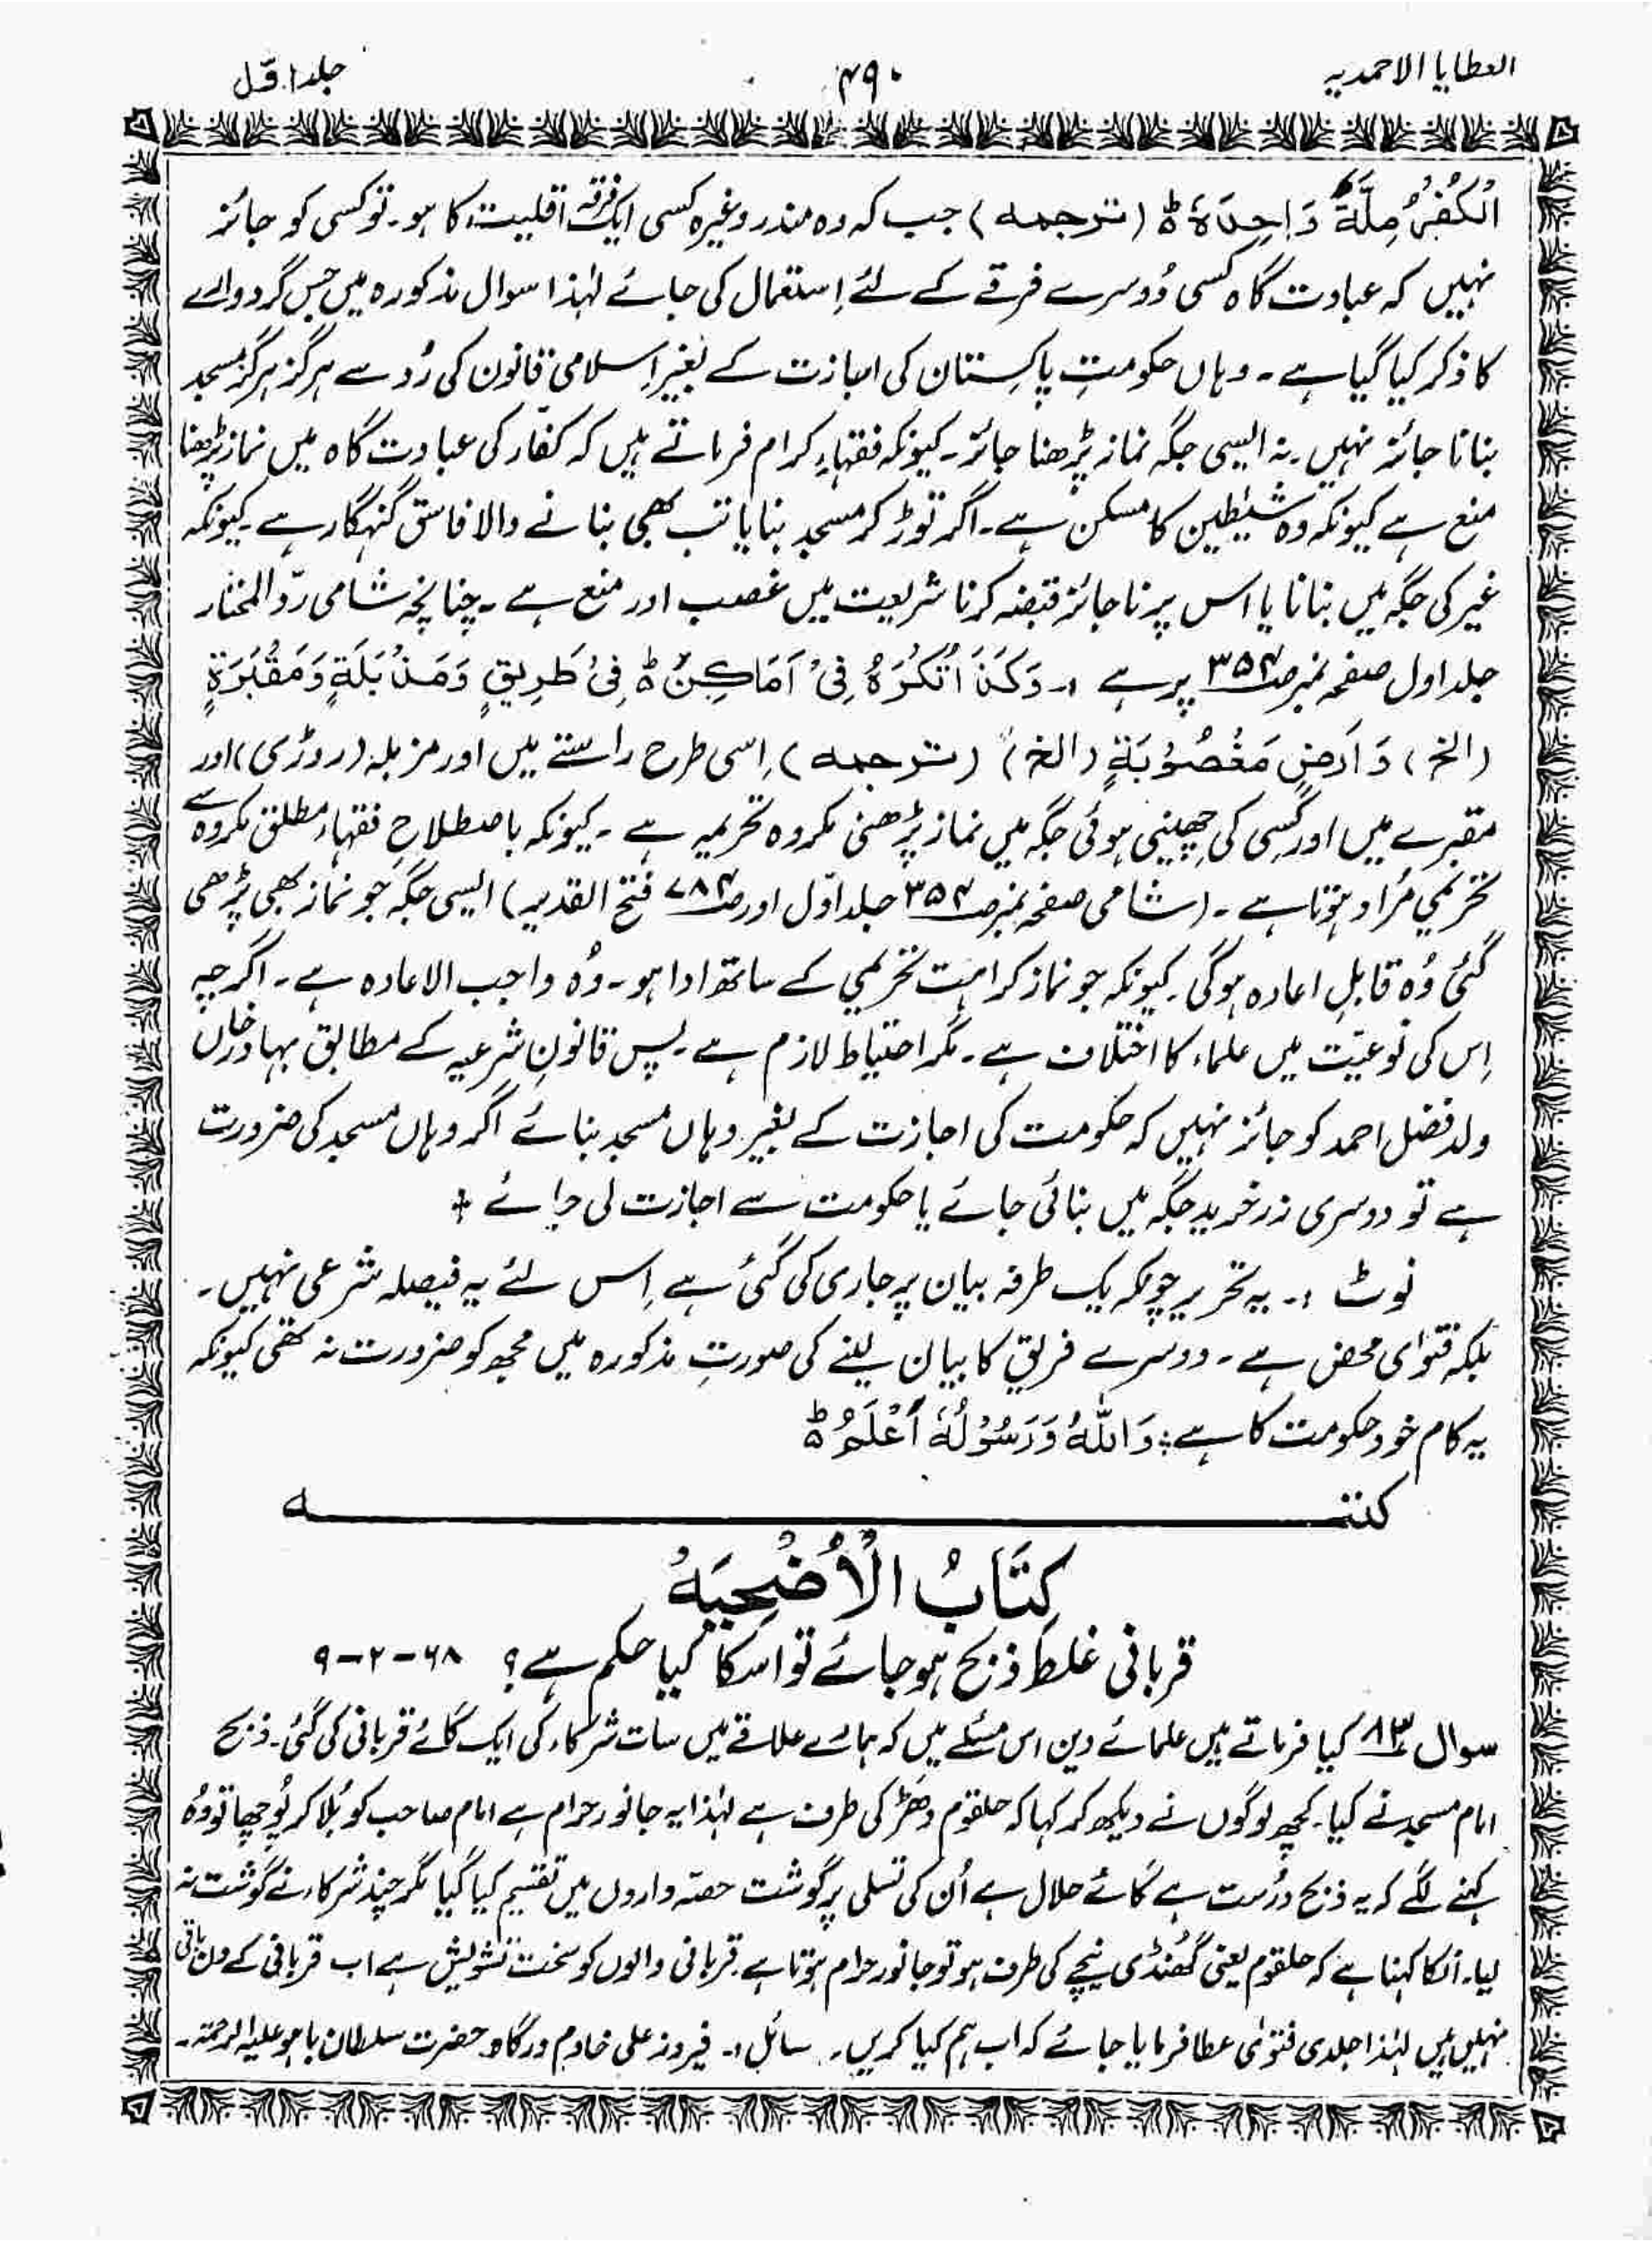 العطایا الاحمدیہ
۴۹۰
جلد اوّل
اَلْکُفْرُ مِلَّةٌ وَاحِدَةٌ ہ (ترجمہ) جب کہ وہ مندر وغیرہ کسی ایک فرقہ اقلیت کا ہو۔ تو کسی کو جائز
نہیں کہ عبادت گاہ کسی دُوسرے فرقے کے لئے اِستعمال کی جائے لہٰذا سوال مذکورہ میں جس گردوارے
کا ذکر کیا گیا ہے۔ وہاں حکومتِ پاکِستان کی اجازت کے بغیر اِسلامی قانون کی رُو سے ہرگز ہرگز مسجد
بنانا جائز نہیں۔ نہ ایسی جگہ نماز پڑھنا جائز۔ کیونکہ فقہاءِ کرام فرماتے ہیں کہ کفّار کی عبادت گاہ میں نماز پڑھنا
منع ہے کیونکہ وہ شیٰطین کا مسکن ہے۔ اگر توڑ کر مسجد بنایا تب بھی بنانے والا فاسق گنہگار ہے۔ کیونکہ
غیر کی جگہ میں بنانا یا اس پر ناجائز قبضہ کرنا شریعت میں غصب اور منع ہے۔ چنانچہ شامی ردّ المختار
جلد اول صفحہ نمبر ص۳۵۴ پر ہے :۔ وَکَذَا تُکْرَہُ فِیْ اَمَاکِنَ ہ فِیْ طَرِیقٍ وَمَزْبَلَةٍ وَمَقْبَرَةٍ
(الخ) وَاَرضٍ مَغْصُوْبَةٍ (الخ) (ترجمہ) اِسی طرح راستے میں اور مزبلہ (روڑی) اور
مقبرے میں اور کسِی کی چھینی ہوئی جگہ میں نماز پڑھنی مکروہ تحریمہ ہے۔ کیونکہ باصطلاحِ فقہاء مطلق مکروہ سے
تحریمی مُراد ہوتا ہے۔ (شامی صفحہ نمبر ص۳۵۴ جلد اوّل اور ص۲۸۴ فتح القدیر) ایسی جگہ جو نماز بھی پڑھی
گئی وُہ قابلِ اعادہ ہوگی۔ کیونکہ جو نماز کراہت تحریمی کے ساتھ ادا ہو۔ وُہ واجب الاعادہ ہے۔ اگرچہ
اِس کی نوعیّت میں علماء کا اختلاف ہے۔ مگر احتیاط لازم ہے۔ پس قانونِ شرعیہ کے مطابق بہادر خاں
ولد فضل احمد کو جائز نہیں کہ حکومت کی اجازت کے بغیر وہاں مسجد بنائے اگر وہاں مسجد کی ضرورت
ہے تو دوسری زر خرید جگہ میں بنائی جائے یا حکومت سے اجازت لی جائے ÷
نوٹ :۔ یہ تحریر چونکہ یک طرفہ بیان پر جاری کی گئی ہے اِس لئے یہ فیصلہ شرعی نہیں۔
بلکہ فتوٰی محض ہے۔ دوسرے فریق کا بیان لینے کی صورتِ مذکورہ میں مجھ کو ضرورت نہ تھی کیونکہ
یہ کام خود حکومت کا ہے : وَاللّٰہُ وَرَسُوْلُہٗ اَعْلَمُ ہ
کتبہ
کِتَابُ الْاُضْحِیَہْ
قربانی غلط ذبح ہو جائے تو اسکا کیا حکم ہے؟ ۶۸-۲-۹
سوال ۸۳ کیا فرماتے ہیں علمائے دین اس مسئلے میں کہ ہمارے علاقے میں سات شرکاء کی ایک گائے قربانی کی گئی۔ ذبح
امام مسجد نے کیا۔ کچھ لوگوں نے دیکھ کر کہا کہ حلقوم دھڑ کی طرف ہے لہٰذا یہ جانور حرام ہے امام صاحب کو بُلا کر پُوچھا تو وُہ
کہنے لگے کہ یہ ذبح درُست ہے گائے حلال ہے اُن کی تسلی پر گوشت حصّہ داروں میں تقسیم کیا گیا مگر چند شرکاء نے گوشت نہ
لیا۔ اُنکا کہنا ہے کہ حلقوم یعنی گھُنڈی نیچے کی طرف ہو تو جانور حرام ہوتا ہے۔ قربانی والوں کو سخت تشویش ہے اب قربانی کے دن باقی
نہیں ہیں لہٰذا جلدی فتوٰی عطا فرمایا جائے کہ اب ہم کیا کریں۔ سائل :۔ فیروز علی خادم درگاہ حضرت سلطان باہو علیہ الرحمتہ۔